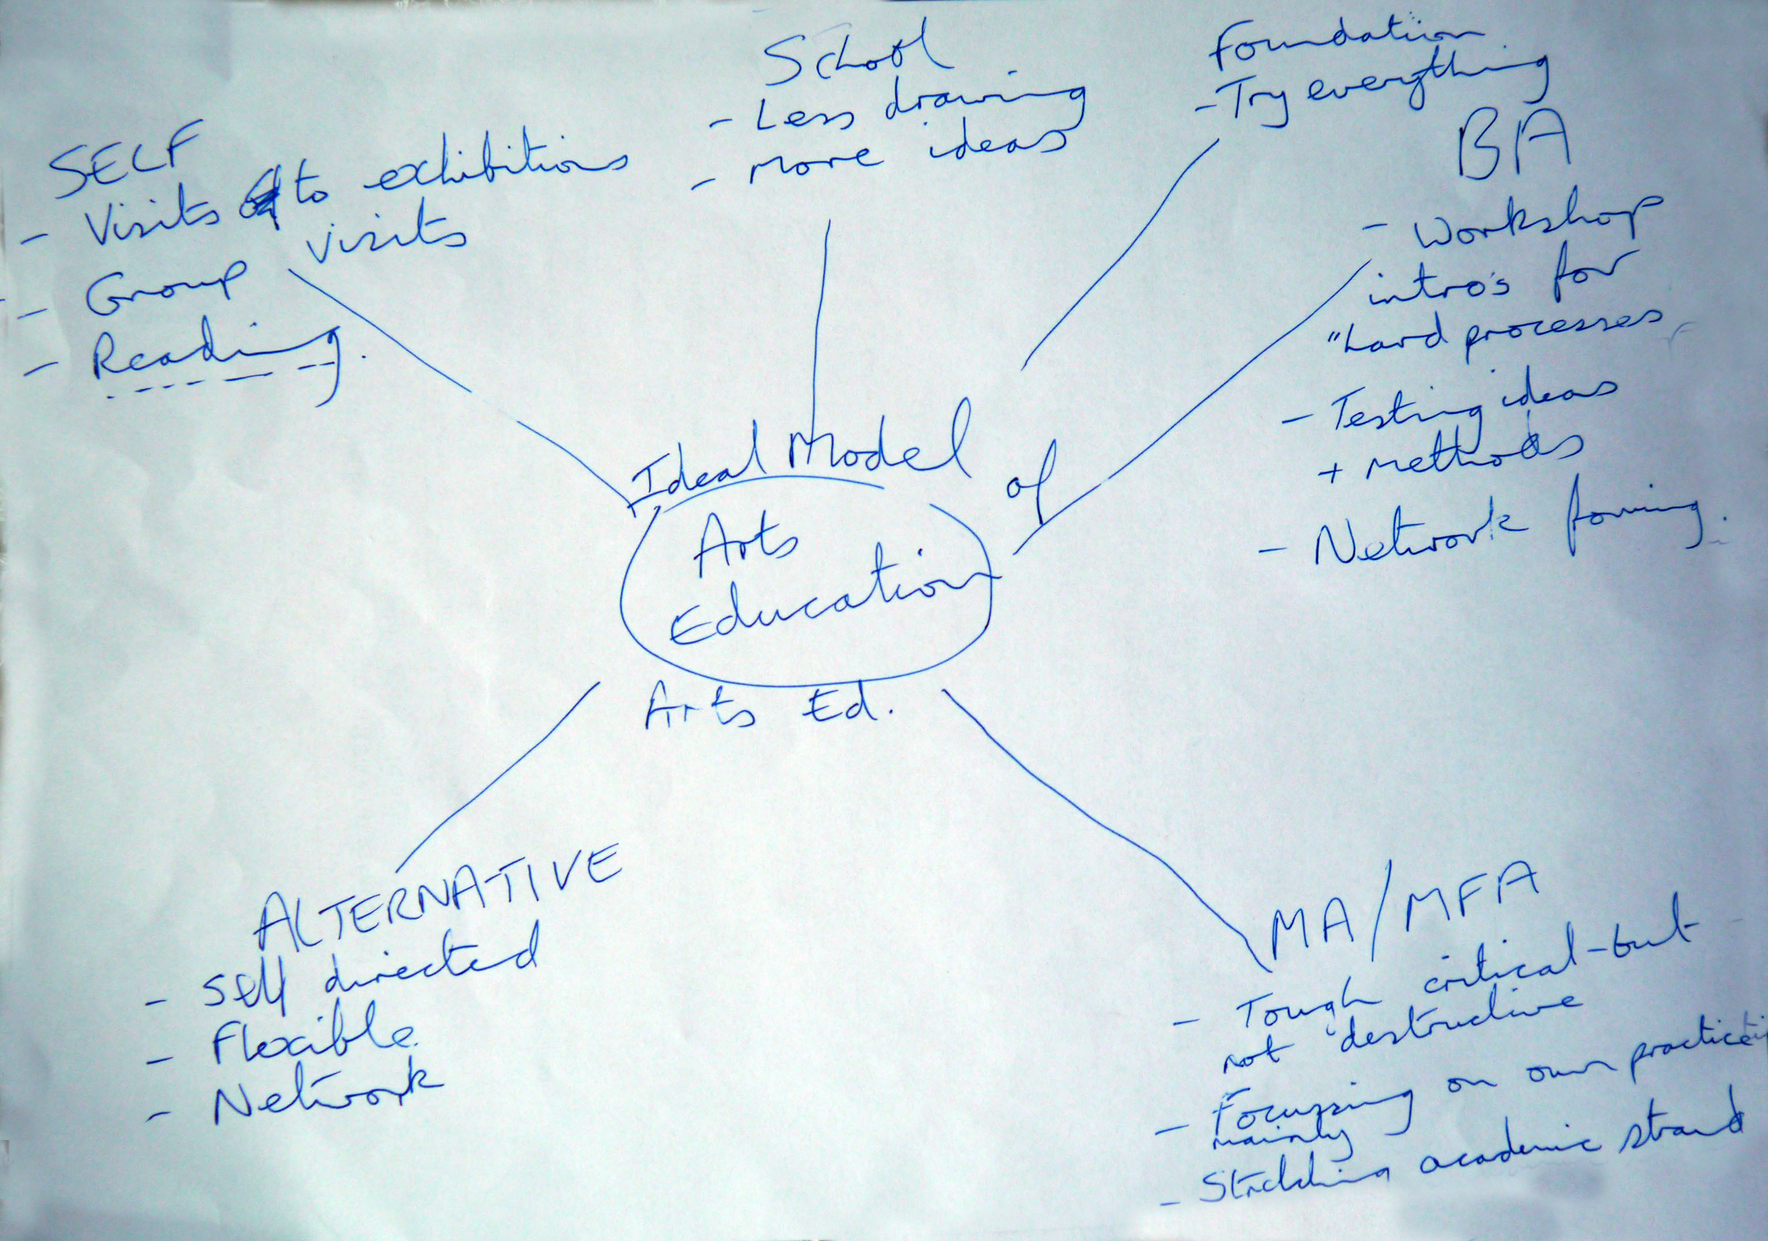 SELF
- Visits to exhibitions
- Group visits
- Reading.
School
- Less drawing
- more ideas
Foundation
- Try everything
BA
- Workshop
intro's for
"hard processes
- Testing ideas
+ methods
- Network forming.
Ideal Model of
Arts
Education
Arts Ed.
ALTERNATIVE
- Self directed
- Flexible
- Network
MA/MFA
- Tough critical - but
not destructive
- Focussing on own practice
mainly
- Stretching academic strand